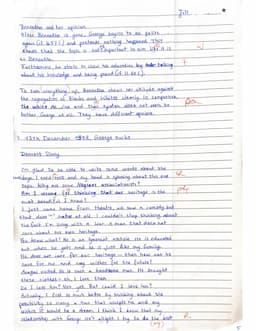 Jill
Beneatha and her opinion.
After Beneatha is gone, George begins to be polite
again (cf. ll.) and pretends nothing happened. This
shows that the topic is not important to him like it is
to Beneatha.
Furthermore, he starts to show his education by talking
about his knowledge and being proud (cf. ll.).
To sum everything up, Beneatha shows her attitude against
the segregation of blacks and whites clearly in comparison
the white and their system does not seem to
bother George at all. They have different opinions.
13th December 1958, George sucks
Dearest Diary,
I'm glad to be able to write some words about the
I need food and my head is spinning about this one
topic: Why are some Negroes assimilationists?
Am I wrong for thinking that our heritage is the
most beautiful I know?
I just came home from theatre, we saw a comedy but
that does not matter at all. I couldn't stop thinking about
the fact I'm going with a man that does not
care about his own heritage.
You know what? He is an ignorant asshole. He is educated
but when he gets mad he is just like my family.
He does not care for our heritage - then how can he
care for me and my wishes for the future?
Asagai visited. He is such a handsome man. He brought
these clothes - oh, I love them.
Do I love him? Not yet. But could I love him?
Actually, I feel so much better by thinking about the
possibility of loving a man that accepts me and my
wishes. It would be a dream. I think I know that my
relationship with George isn't alright. I try to do the best